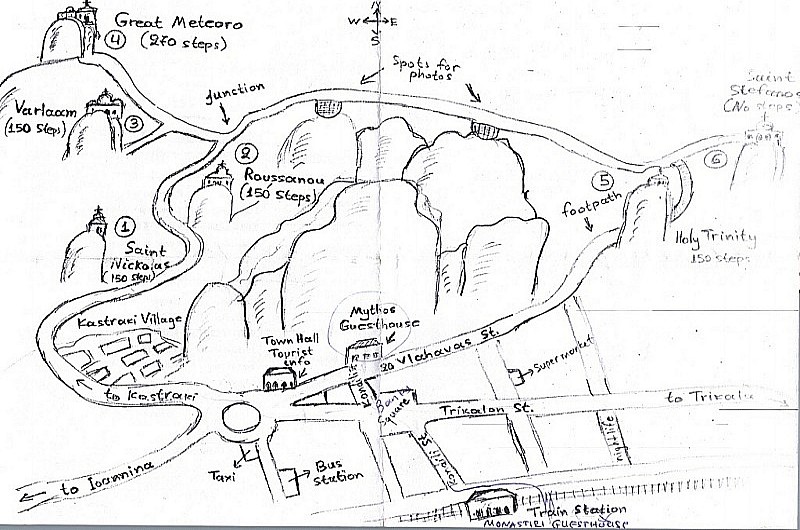 N
W E
S
Great Meteoro
4 (270 steps)
Varlaam
(150 steps)
3
junction
Spots for
photos
Saint
Stefanos
(No steps)
2
Roussanou
(150 steps)
5
6
footpath
Holy Trinity
150 steps
1
Saint
Nickolas
(150 steps)
Kastraki Village
Mythos
Guesthouse
Town Hall
Tourist
info
20 Vlahavas St.
Supermarket
to Kastraki
Square
Trikalon St.
to Trikala
nightlife
to Ioannina
Taxi
Bus
station
Train Station
MONASTIRI GUESTHOUSE